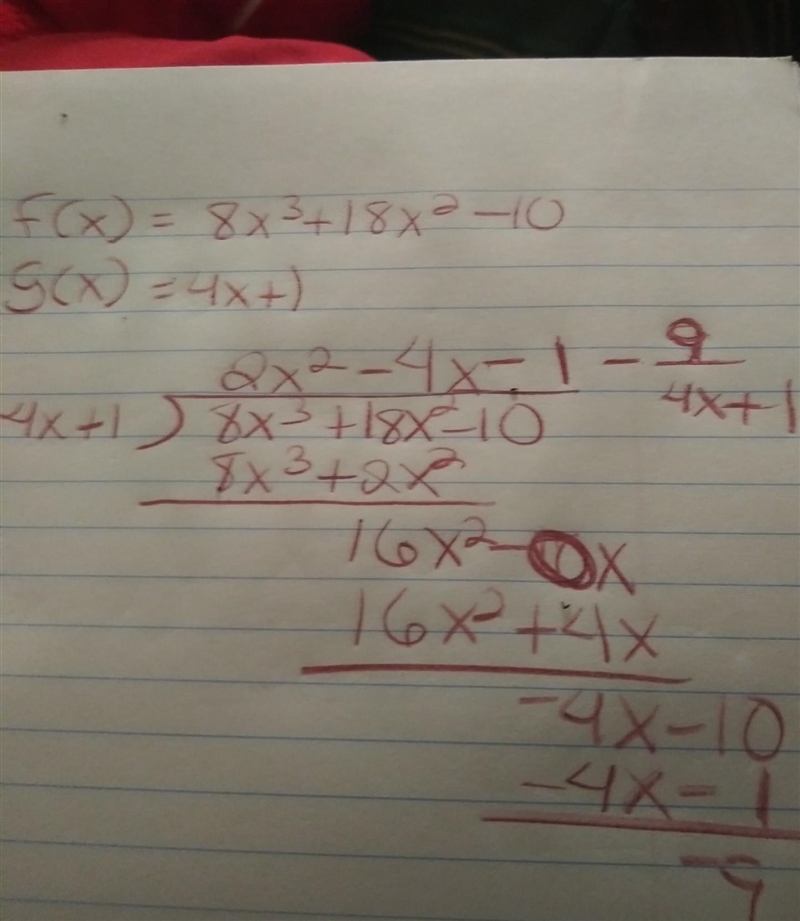 f(x) = 8x³+18x²-10
g(x) = 4x+1
2x²-4x-1 - 9/4x+1
4x+1 ) 8x³+18x²-10
8x³+2x²
16x²-0x
16x²+4x
-4x-10
-4x-1
-9